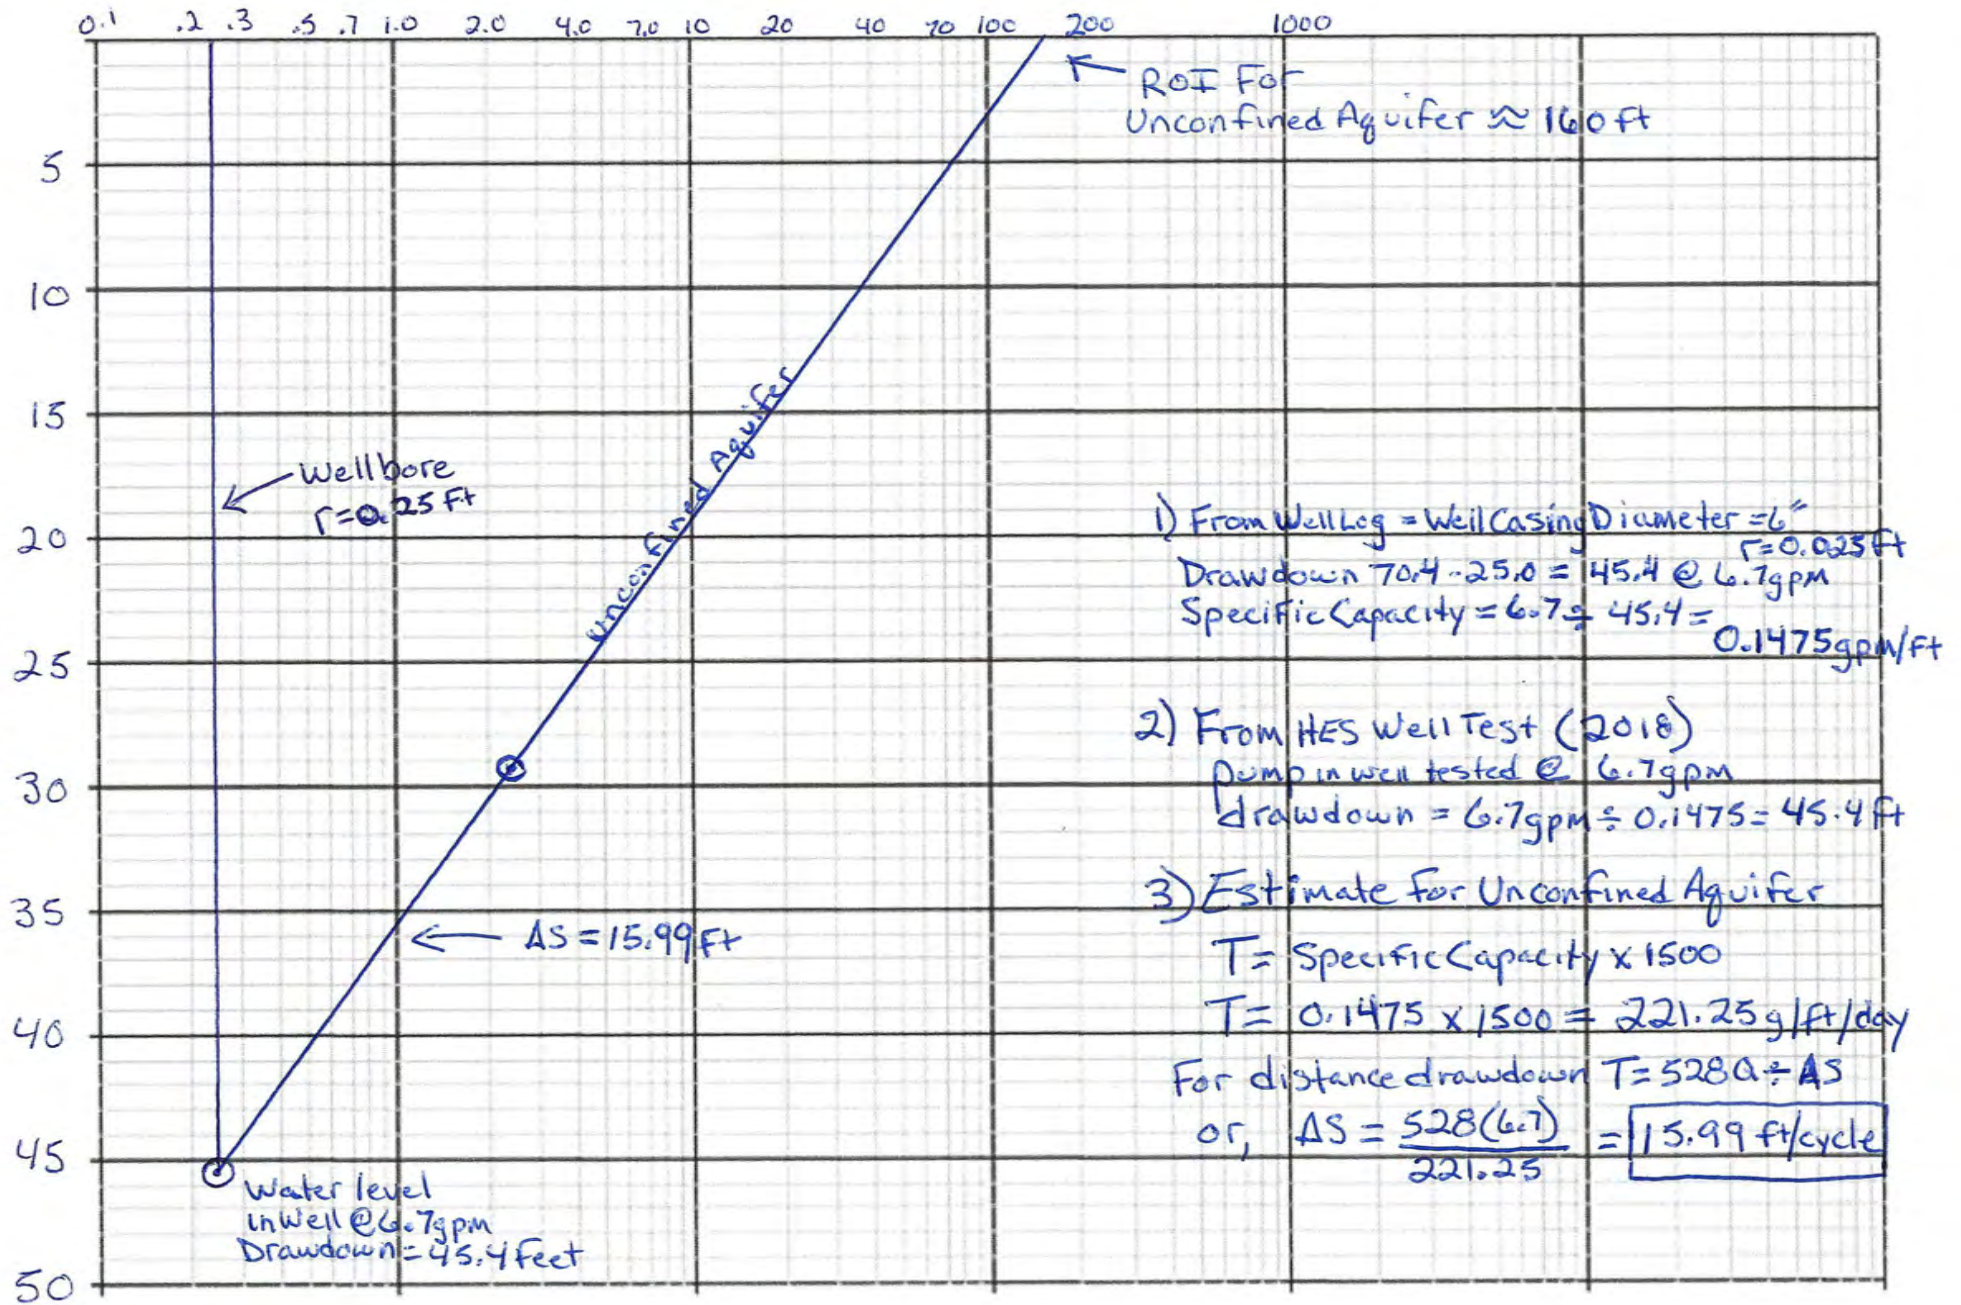 0.1 .2 .3 .5 .7 1.0 2.0 4.0 7.0 10 20 40 70 100 200 1000
ROI For
Unconfined Aquifer ≈ 160 ft
5
10
15
20
25
30
35
40
45
50
Wellbore
r=0.25 ft
Unconfined Aquifer
ΔS = 15.99 ft
Water level
in Well @ 6.7gpm
Drawdown = 45.4 feet
1) From Well Log = Well Casing Diameter = 6"
r=0.025 ft
Drawdown 70.4 - 25.0 = 45.4 @ 6.7gpm
Specific Capacity = 6.7 ÷ 45.4 =
0.1475gpm/ft
2) From HES Well Test (2018)
pump in well tested @ 6.7gpm
drawdown = 6.7gpm ÷ 0.1475 = 45.4 ft
3) Estimate for Unconfined Aquifer
T = Specific Capacity x 1500
T = 0.1475 x 1500 = 221.25 g/ft/day
For distance drawdown T = 528Q ÷ ΔS
or, ΔS = 528(6.7) = 15.99 ft/cycle
221.25